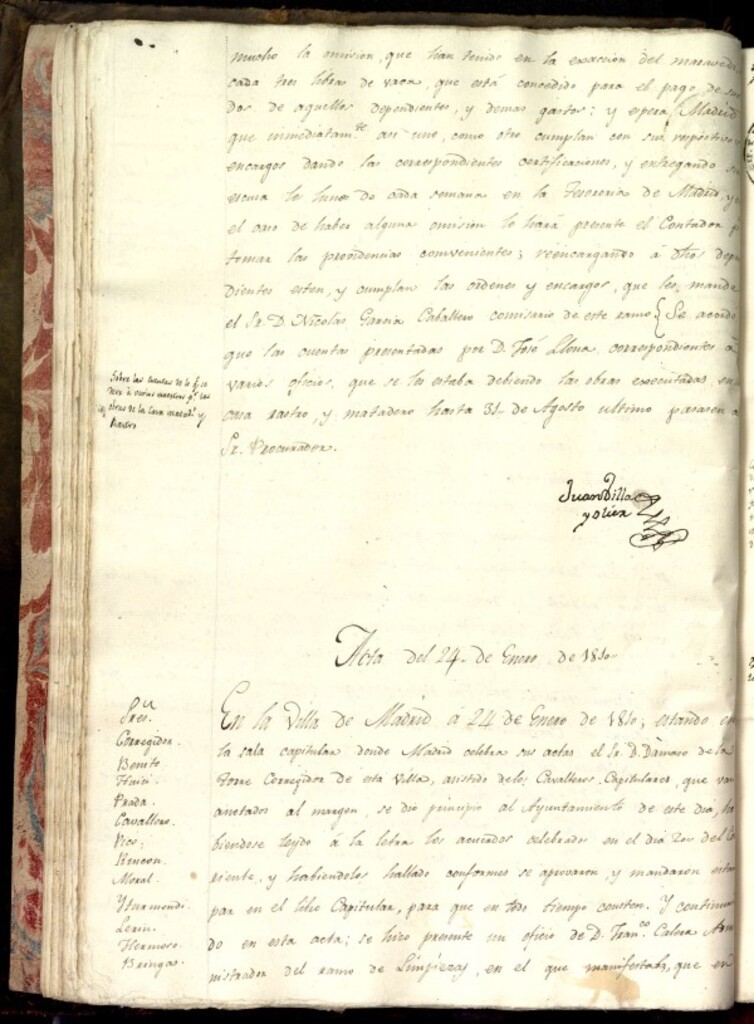 mucho la omision, que han tenido en la exaccion del maravedi
cada tres libras de vaca, que está concedido para el pago de
dos de aquellos dependientes, y demas gastos: y espera Madrid
que inmediatam.te asi uno, como otro cumplan con sus respectivos
encargos dando las correspondientes certificaciones, y entregando
los lunes de cada semana en la Tesoreria de Madrid, y
el caso de haber alguna omision lo hará presente el Contador p
tomar las providencias convenientes; reencargando á dhos depen
dientes esten, y cumplan las ordenes y encargos, que les mande
el Sr. D. Nicolas Garcia Caballero comisario de este ramo { Se acordó
que las cuentas presentadas por D. José Llena correspondientes á
varios oficios, que se les estaba debiendo las obras executadas en
casa rastro, y matadero hasta 31 de Agosto ultimo pasasen a
Sr. Procurador.
Sobre las cuentas de lo q.e se
á varios maestros p.r las
obras de la Casa matad.o y
Rastro
Juan Villa
y Olier
Acta del 24 de Enero de 1810
Sres.
Corregidor.
Benito
Prada.
Cavallero.
Rincon.
Moral.
Yturmendi.
Lerin.
Hermoso.
Bringas.
En la Villa de Madrid á 24 de Enero de 1810; estando en
la sala capitular donde Madrid celebra sus actas el Sr. D. Dámaso de la
Torre Corregidor de esta Villa, asistido de los Cavalleros Capitulares, que van
anotados al margen, se dio principio al Ayuntamiento de este dia, ha
biendose leydo á la letra los acuerdos celebrados en el dia 20 del Co
rriente, y habiendolos hallado conformes se aprovaron, y mandaron estam
par en el libro Capitular, para que en todo tiempo consten. Y continuan
do en esta acta; se hizo presente un oficio de D. Fran.co Calera Admi
nistrador del ramo de Limpiezas, en el que manifestaba, que en